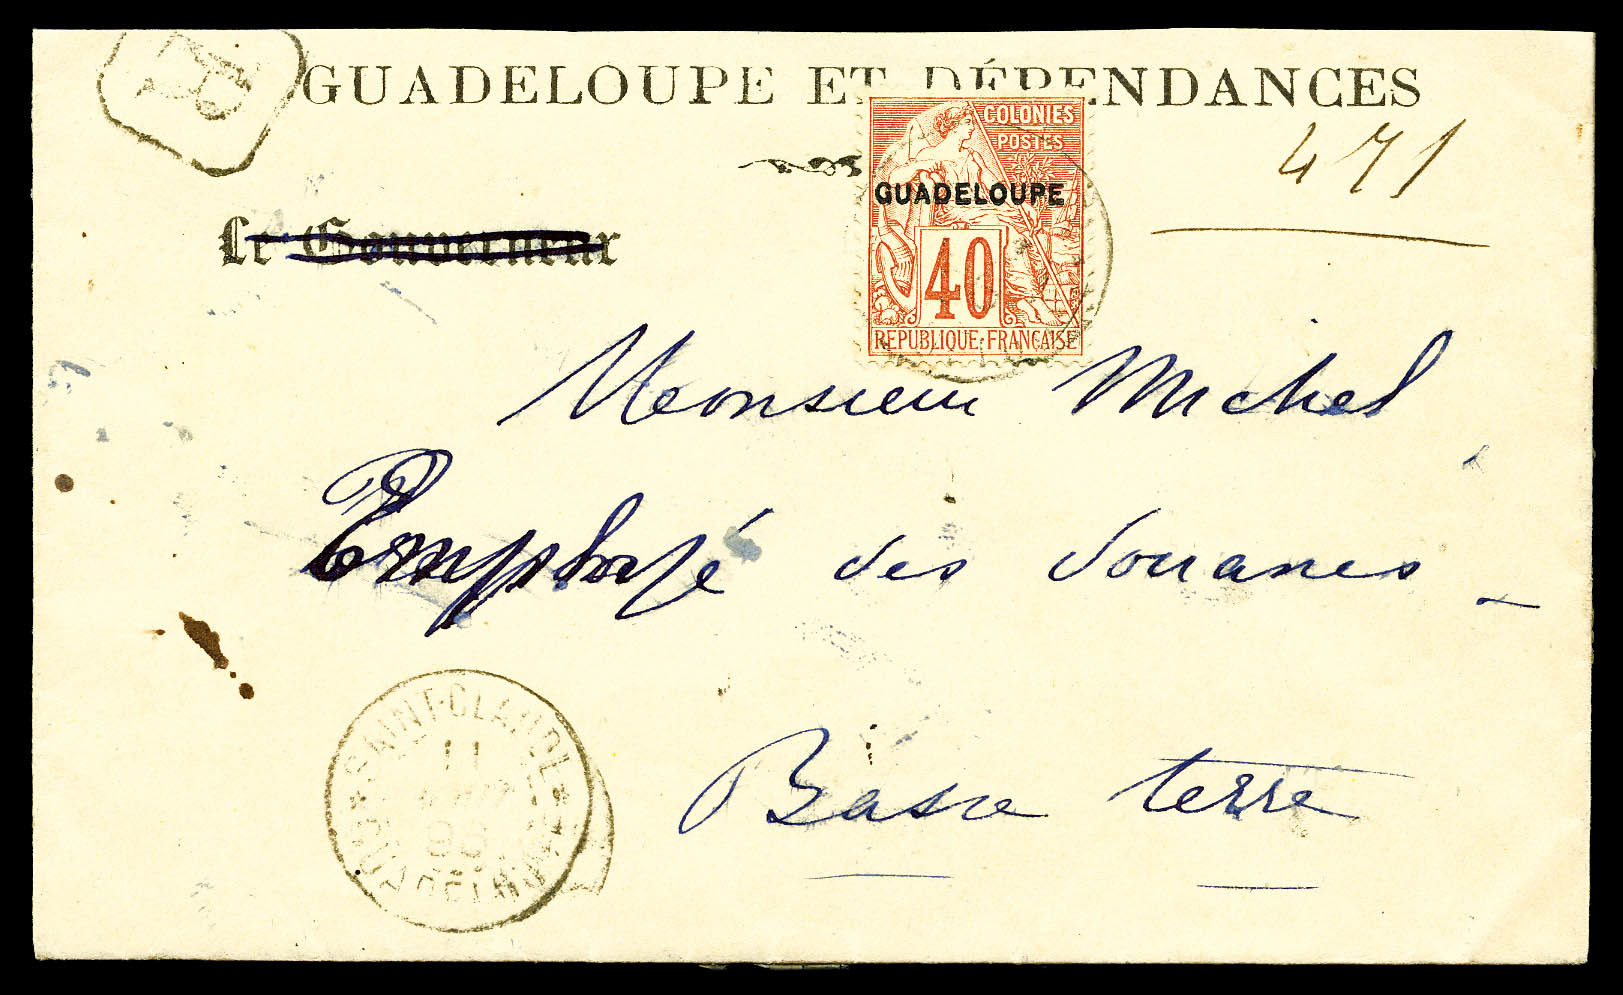 R
GUADELOUPE ET DÉPENDANCES
471
COLONIES
POSTES
GUADELOUPE
40
REPUBLIQUE FRANÇAISE
Le Gouverneur
Monsieur Michel
Employé des douanes
Basse terre
SAINT-CLAUDE
11
96